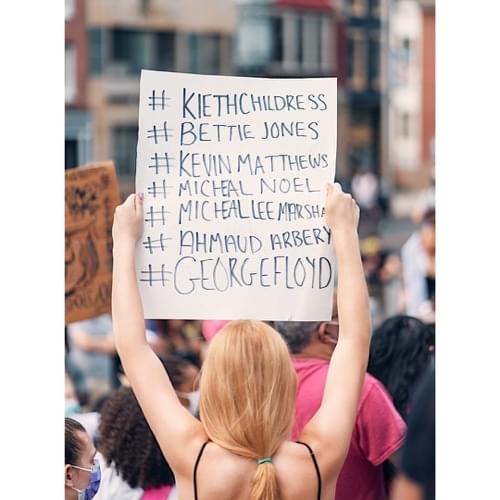 # KIETHCHILDRESS
# BETTIE JONES
# KEVIN MATTHEWS
# MICHEAL NOEL
# MICHEAL LEE MARSHA
# AHMAUD ARBERY
# GEORGEFLOYD